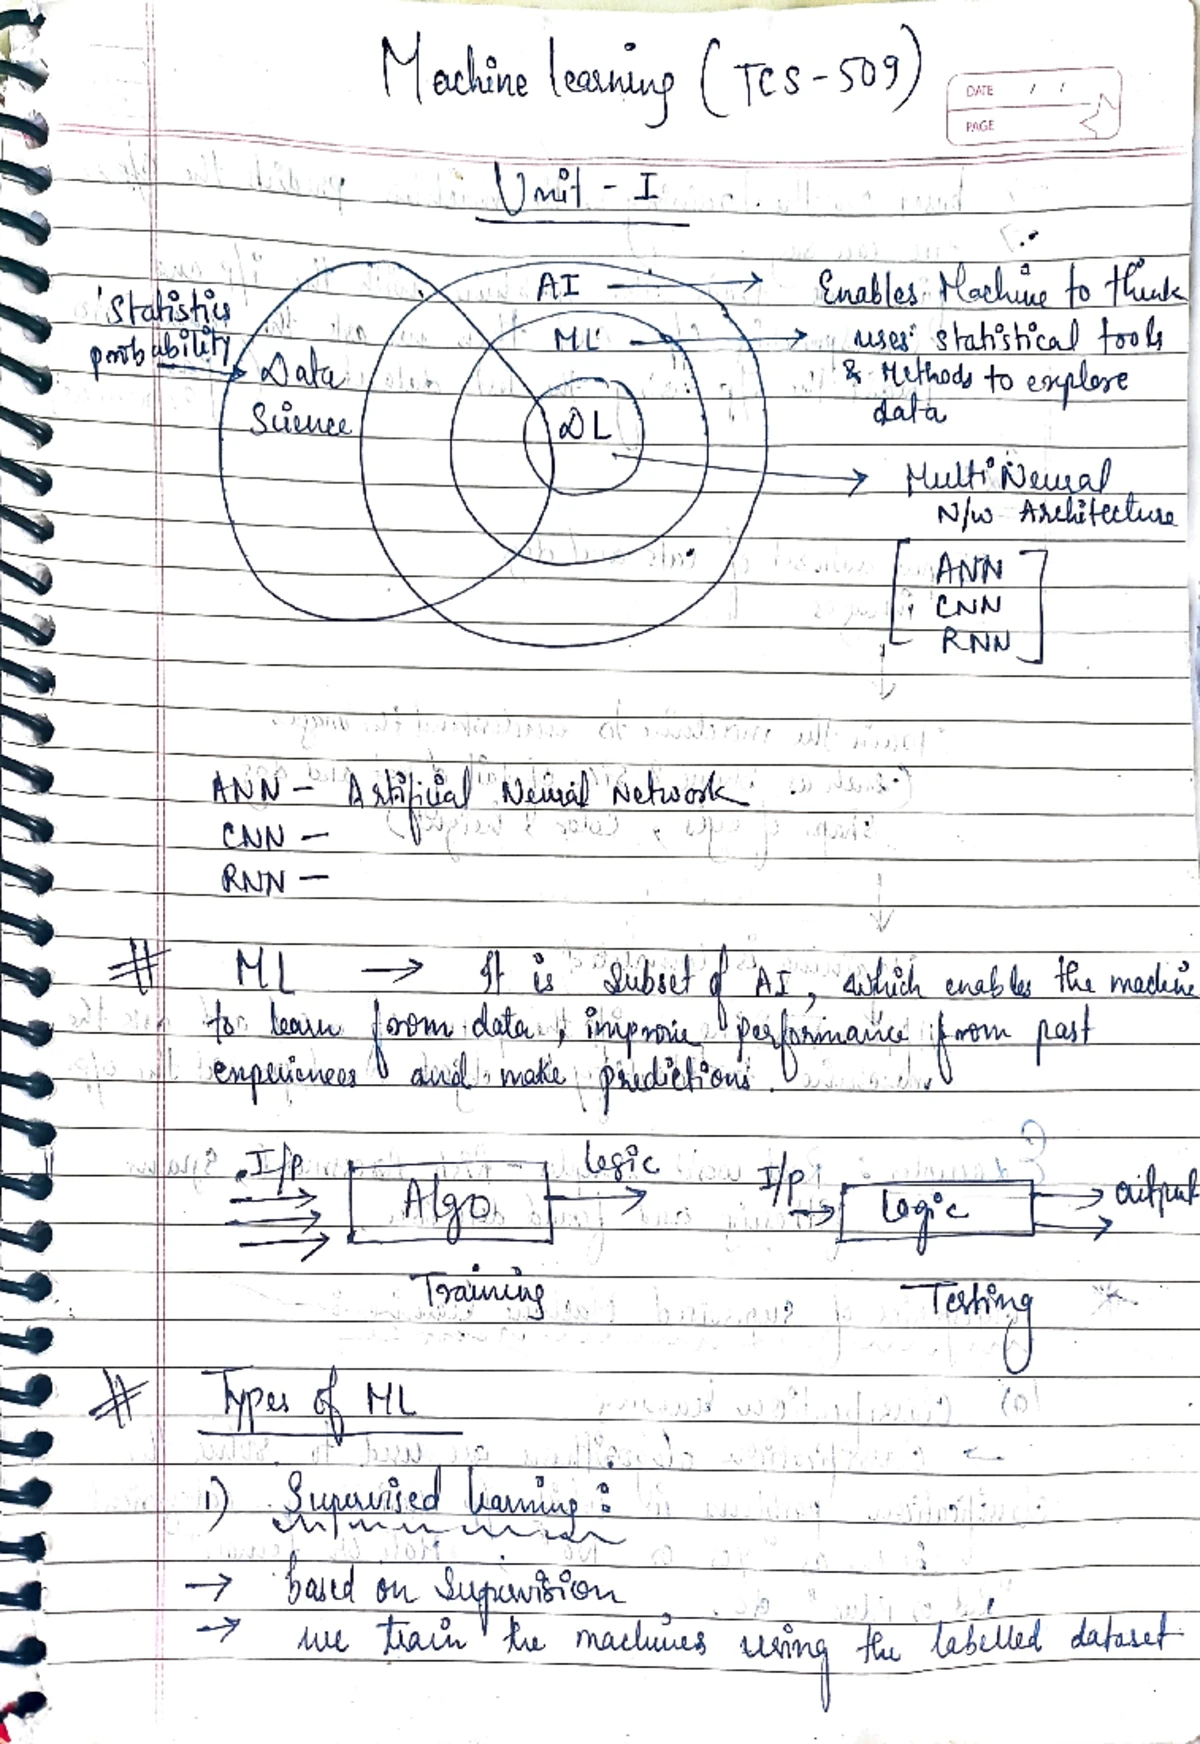 Machine learning (TCS-509)
DATE / /
PAGE
Unit - I
Statistics
probability
Data
Science
AI
ML
DL
Enables Machine to think
uses statistical tools
& Methods to explore
data
Multi Neural
N/w Architecture
ANN
CNN
RNN
ANN - Artificial Neural Network
CNN -
RNN -
# ML → It is Subset of AI, which enables the machine
to learn from data, improve performance from past
experiences and make predictions.
I/p Algo logic I/p logic output
Training Testing
# Types of ML
1) Supervised learning:
→ based on Supervision
→ we train the machines using the labelled dataset